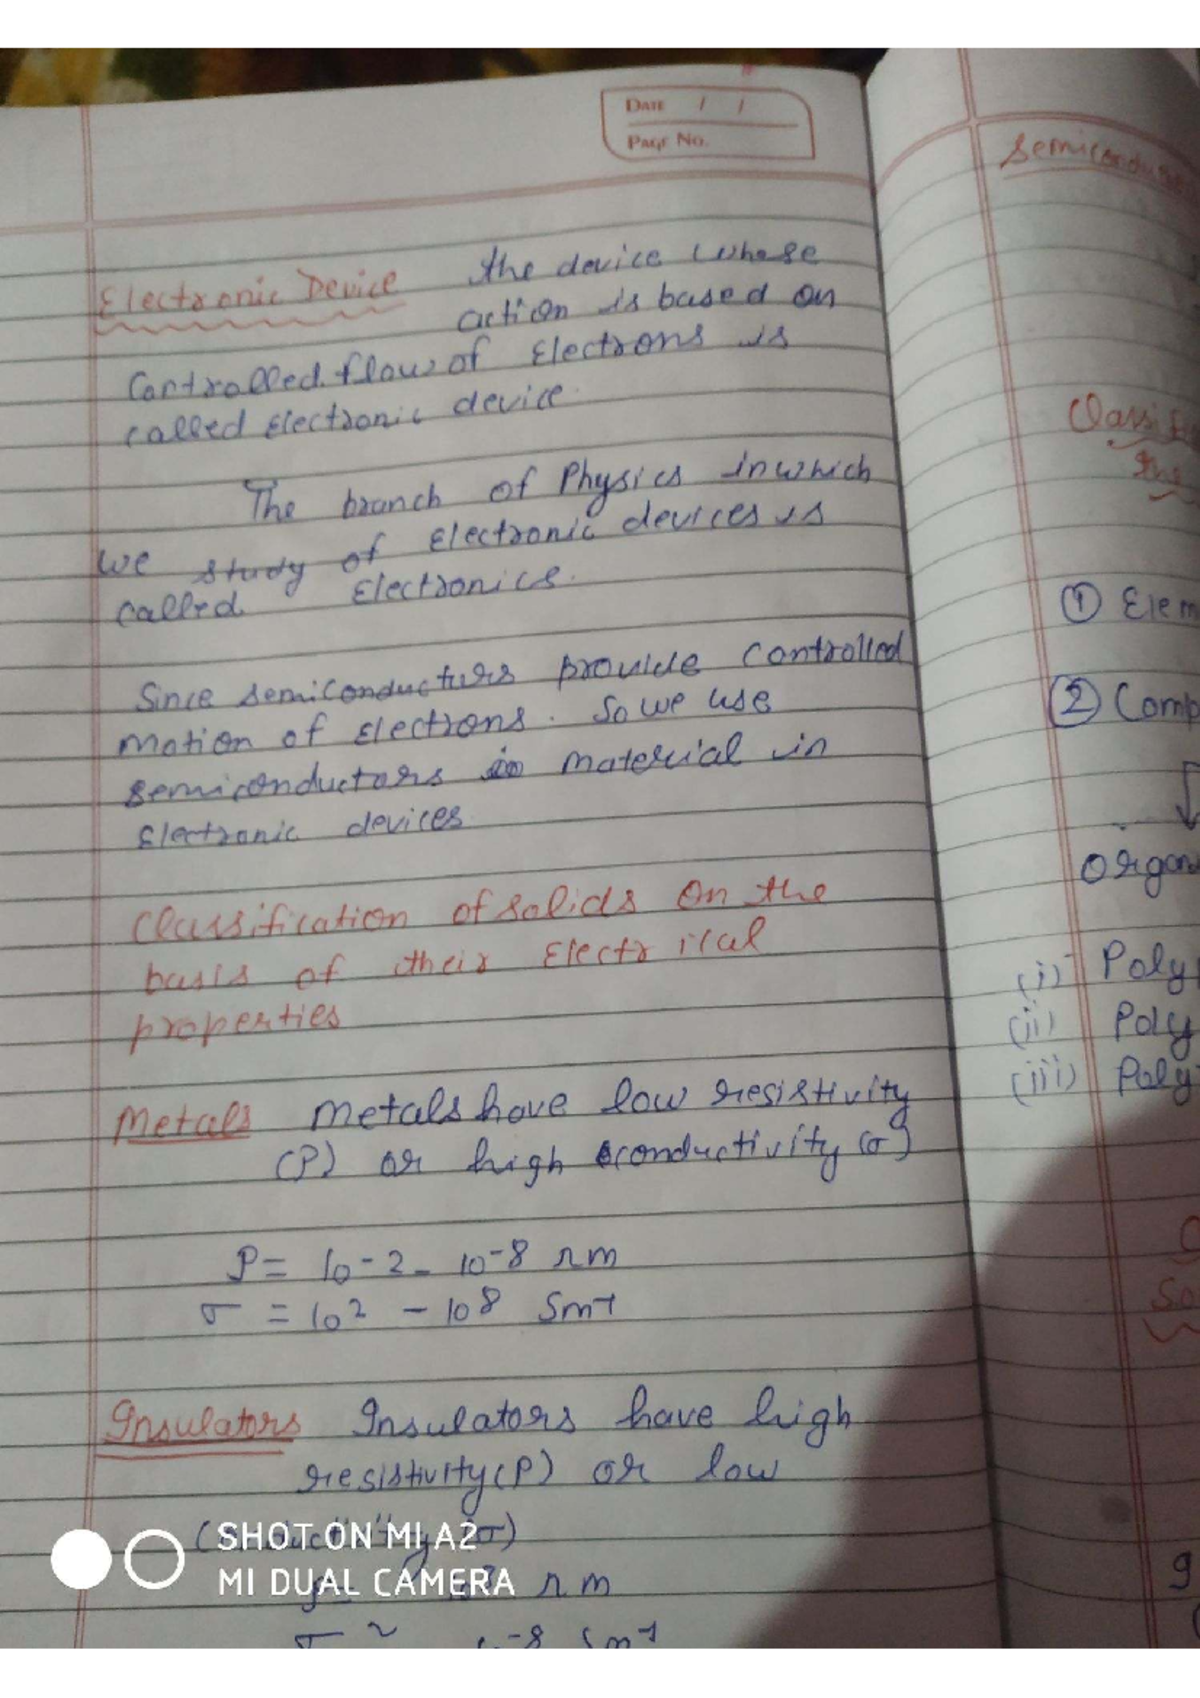 DATE / /
PAGE NO.
Electronic Device the device whose
action is based on
Controlled flow of Electrons is
called Electronic device.
The branch of Physics in which
we study of Electronic devices is
called Electronics.
Since semiconductors provide controlled
motion of Electrons. So we use
semiconductors in material in
Electronic devices
Classification of solids on the
basis of their Electrical
properties
Metals Metals have low resistivity
(ρ) or high conductivity (σ)
ρ = 10-2 - 10-8 Ωm
σ = 10² - 10⁸ Sm-1
Insulators Insulators have high
resistivity (ρ) or low
(σ)
Ωm
σ -8 Sm-1
SHOT ON MI A2
MI DUAL CAMERA
① Elem
② Comp
Organ
(i) Poly
(ii) Poly
(iii) Poly